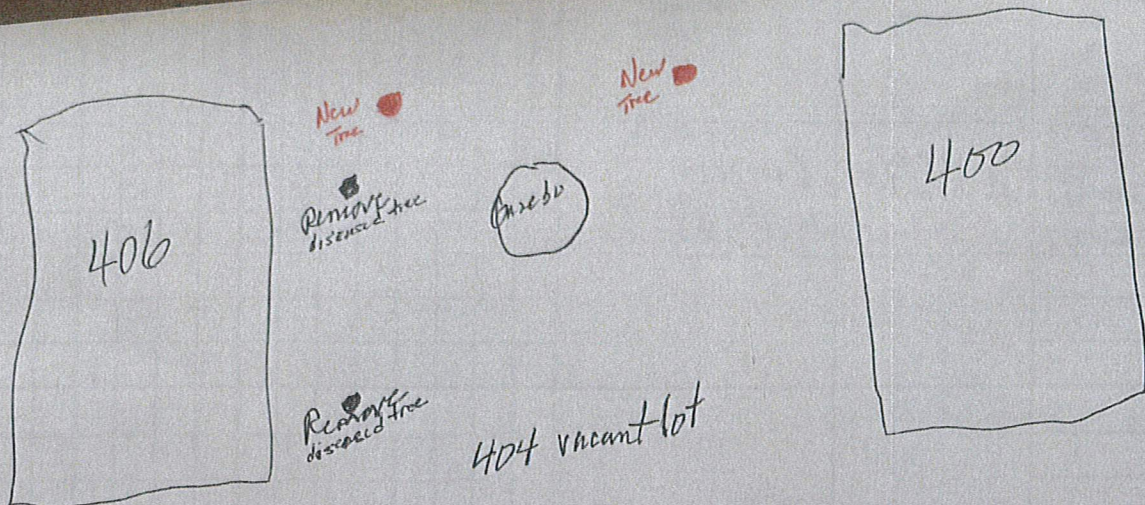 New
Tree
New
Tree
400
Remove
diseased tree
Gazebo
406
Remove
diseased tree
404 vacant lot